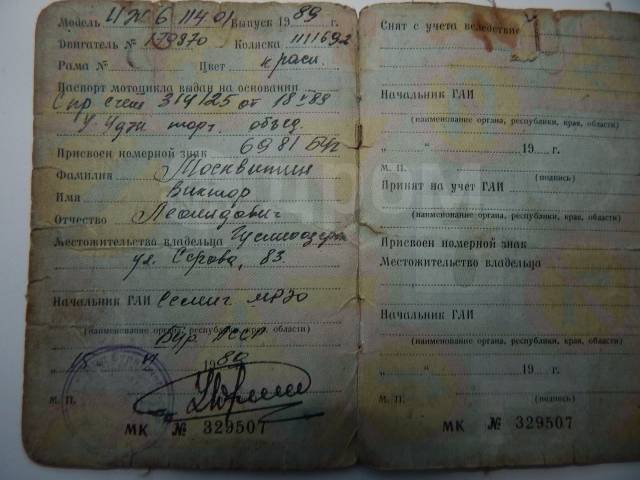 Модель ИЖ 6 114 01 Выпуск 1989 г.
Двигатель № 179870 Коляска 111169.2
Рама № Цвет красн.
Паспорт мотоцикла выдан на основании
Спр счет 314125 от 18
торг. объед.
Присвоен номерной знак 6981
Фамилия Москвитин
Имя Виктор
Отчество Леонидович
Местожительства владельца Гусиноозерск
ул. Серова, 83.
Начальник ГАИ МРЭО
(наименование органа, республики, края, области)
Бур АССР
„15 “ 1989
М. П.
МК № 329507
Снят с учета вследствие
Начальник ГАИ
(наименование органа, республики, края, области)
„ “ 19 г.
М. П. (подпись)
Принят на учет ГАИ
(наименование органа, республики, края, области)
Присвоен номерной знак
Местожительство владельца
Начальник ГАИ
(наименование органа, республики, края, области)
„ “ 19 г.
М. П. (подпись)
МК № 329507
ДРОМ